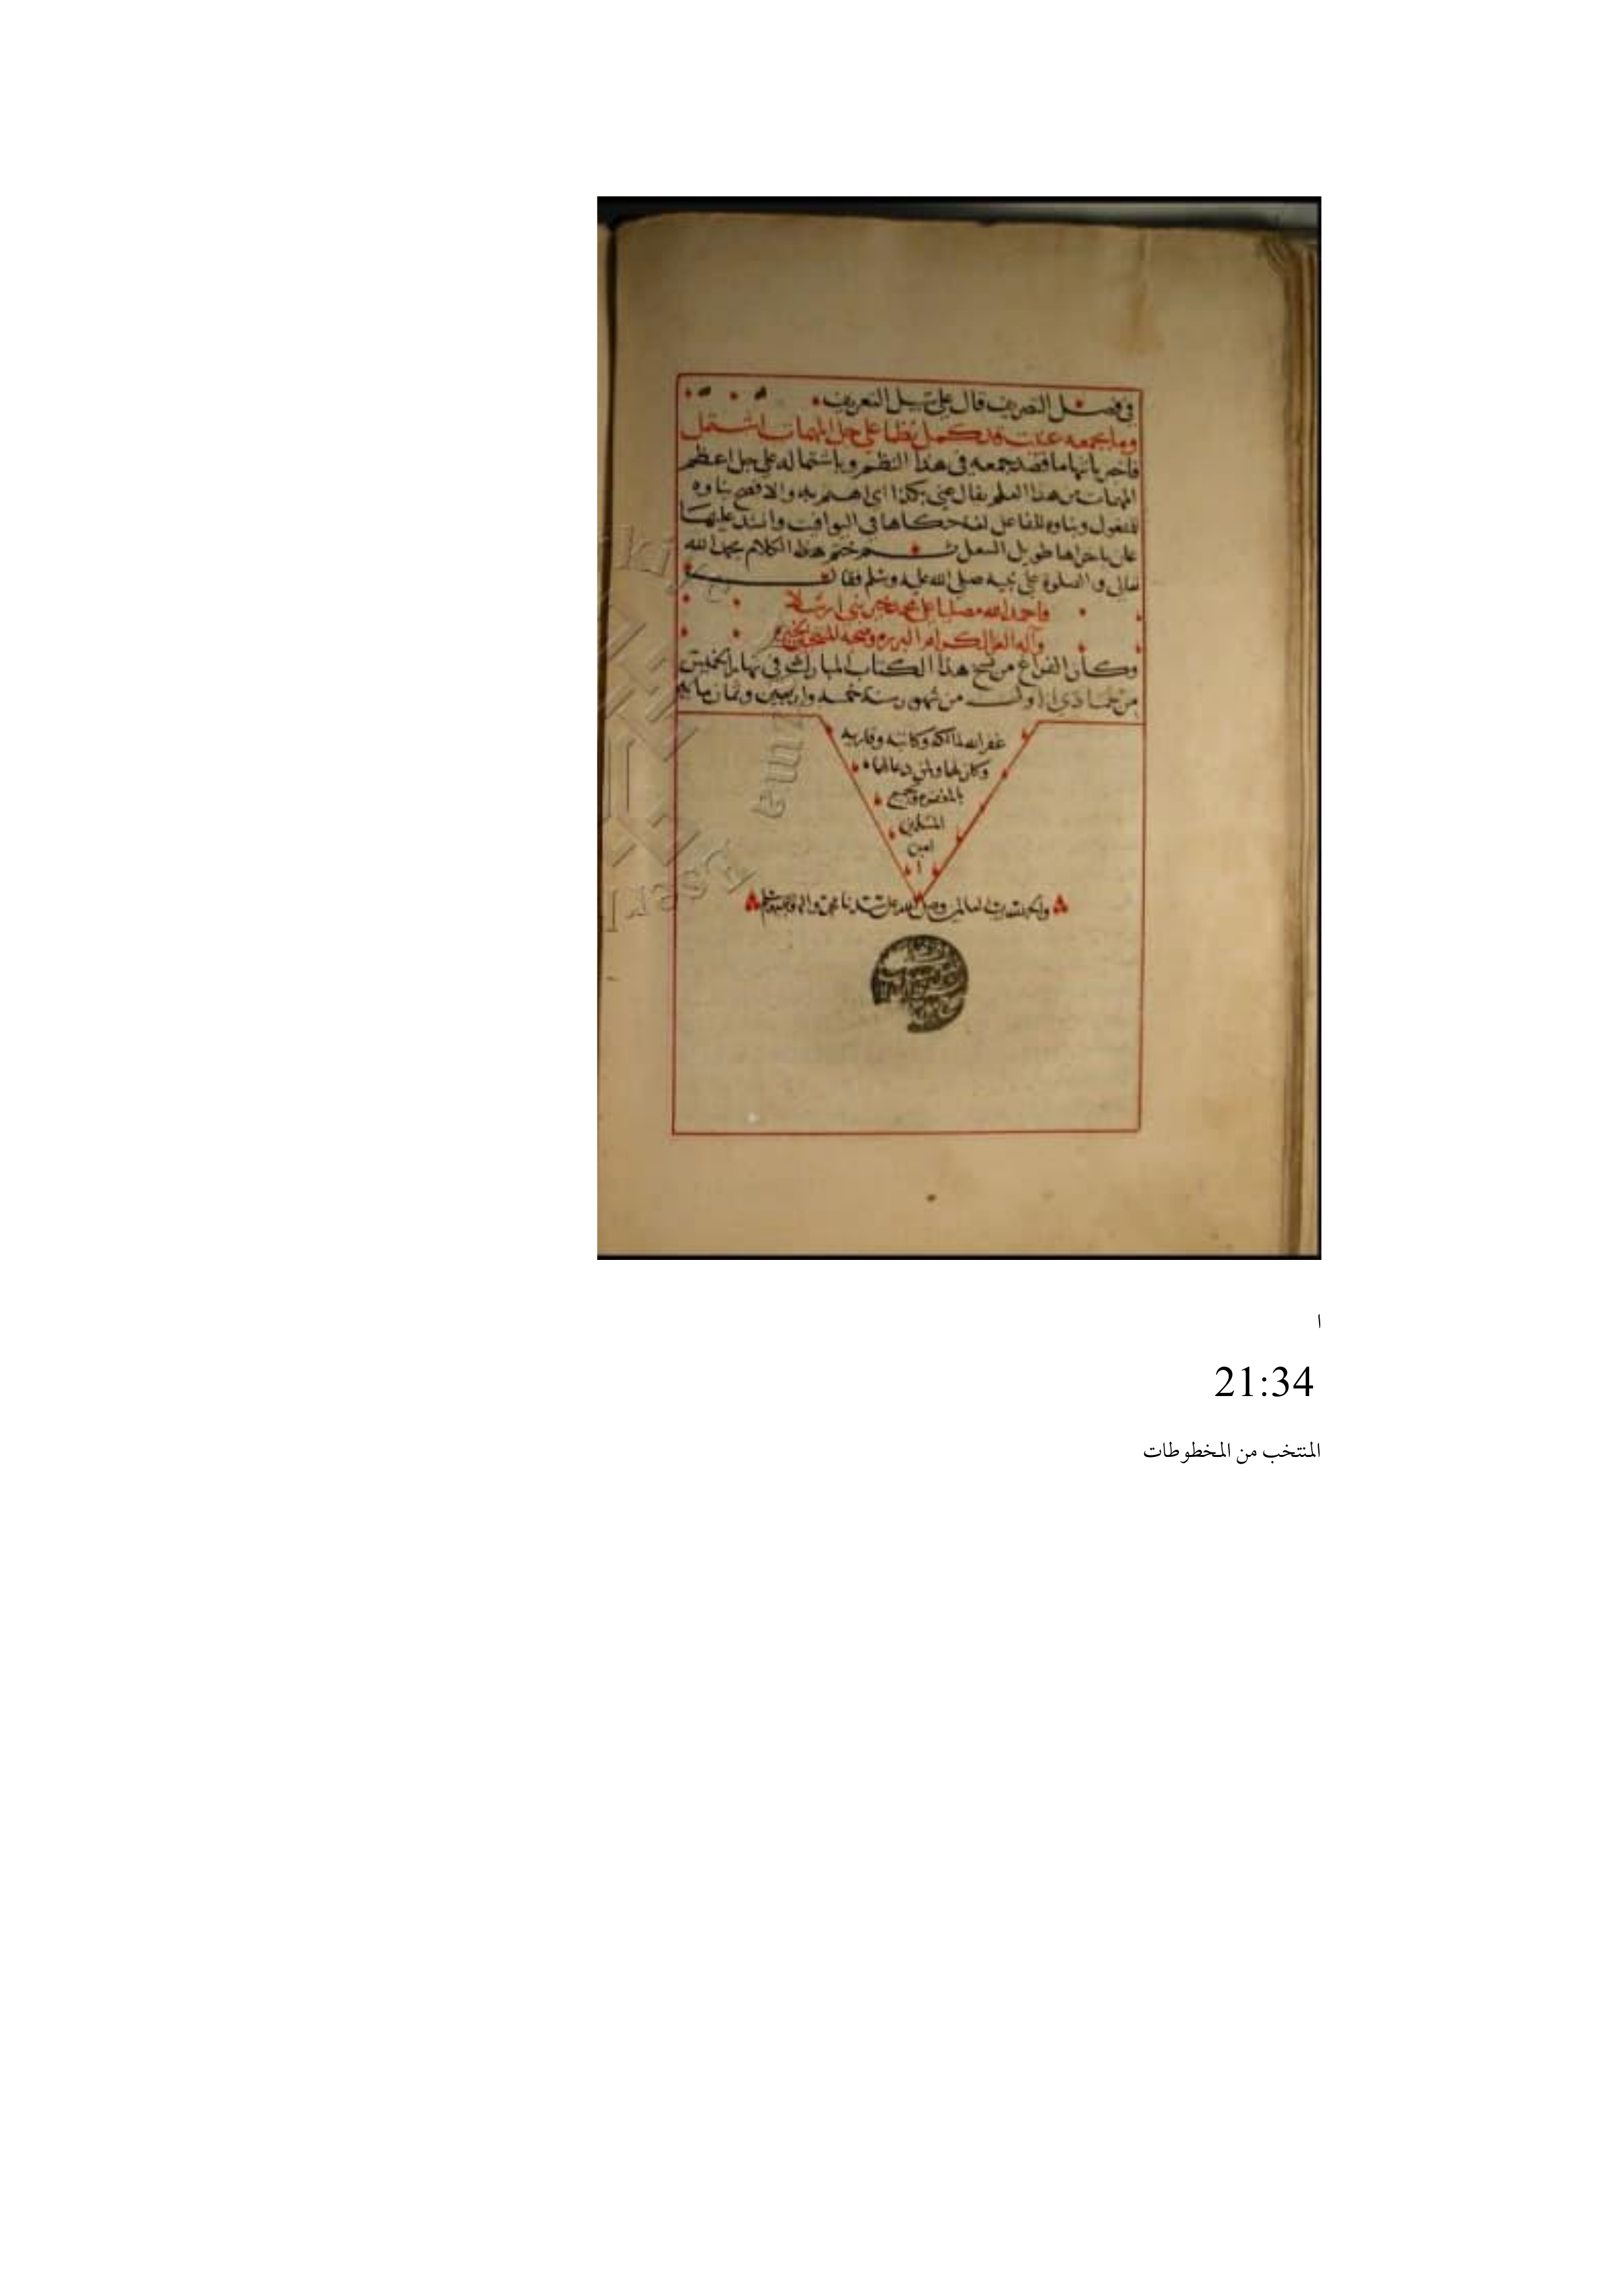 في فصل التصريف قال على سبيل التعريف
وما بجمعه عنيت قد كمل نظما على جل المهمات اشتمل
فاخبر بانهاما قصد جمعه في هذا النظم وباشتماله على جل اعظم
المهمات من هذا العلم يقال عني بكذا اي اهتم به والافصح بناوه
للمفعول وبناوه للفاعل لغة حكاها في اليواقيت وانشد عليها
عان باخراها طويل الشغل ثم ختم هذا الكلام بحمد الله
تعالى والصلوة على نبيه صلى الله عليه وسلم فقال
فاحمد الله مصليا على محمد خير نبي ارسلا
وآله الغر الكرام البرره وصحبه المنتخبين الخيره
وكان الفراغ من نسخ هذا الكتاب المبارك في نهار الخميس
من جمادي الاول من شهور سنة خمسه واربعين وثمان مايه
غفر الله لمالكه وكاتبه وقاريه
وكان لها ولمن دعا لهما
بالمغفره ولجميع
المسلمين
امين
والحمد لله رب العالمين وصلى الله على سيدنا محمد واله وصحبه وسلم
ا
21:34
المنتخب من المخطوطات